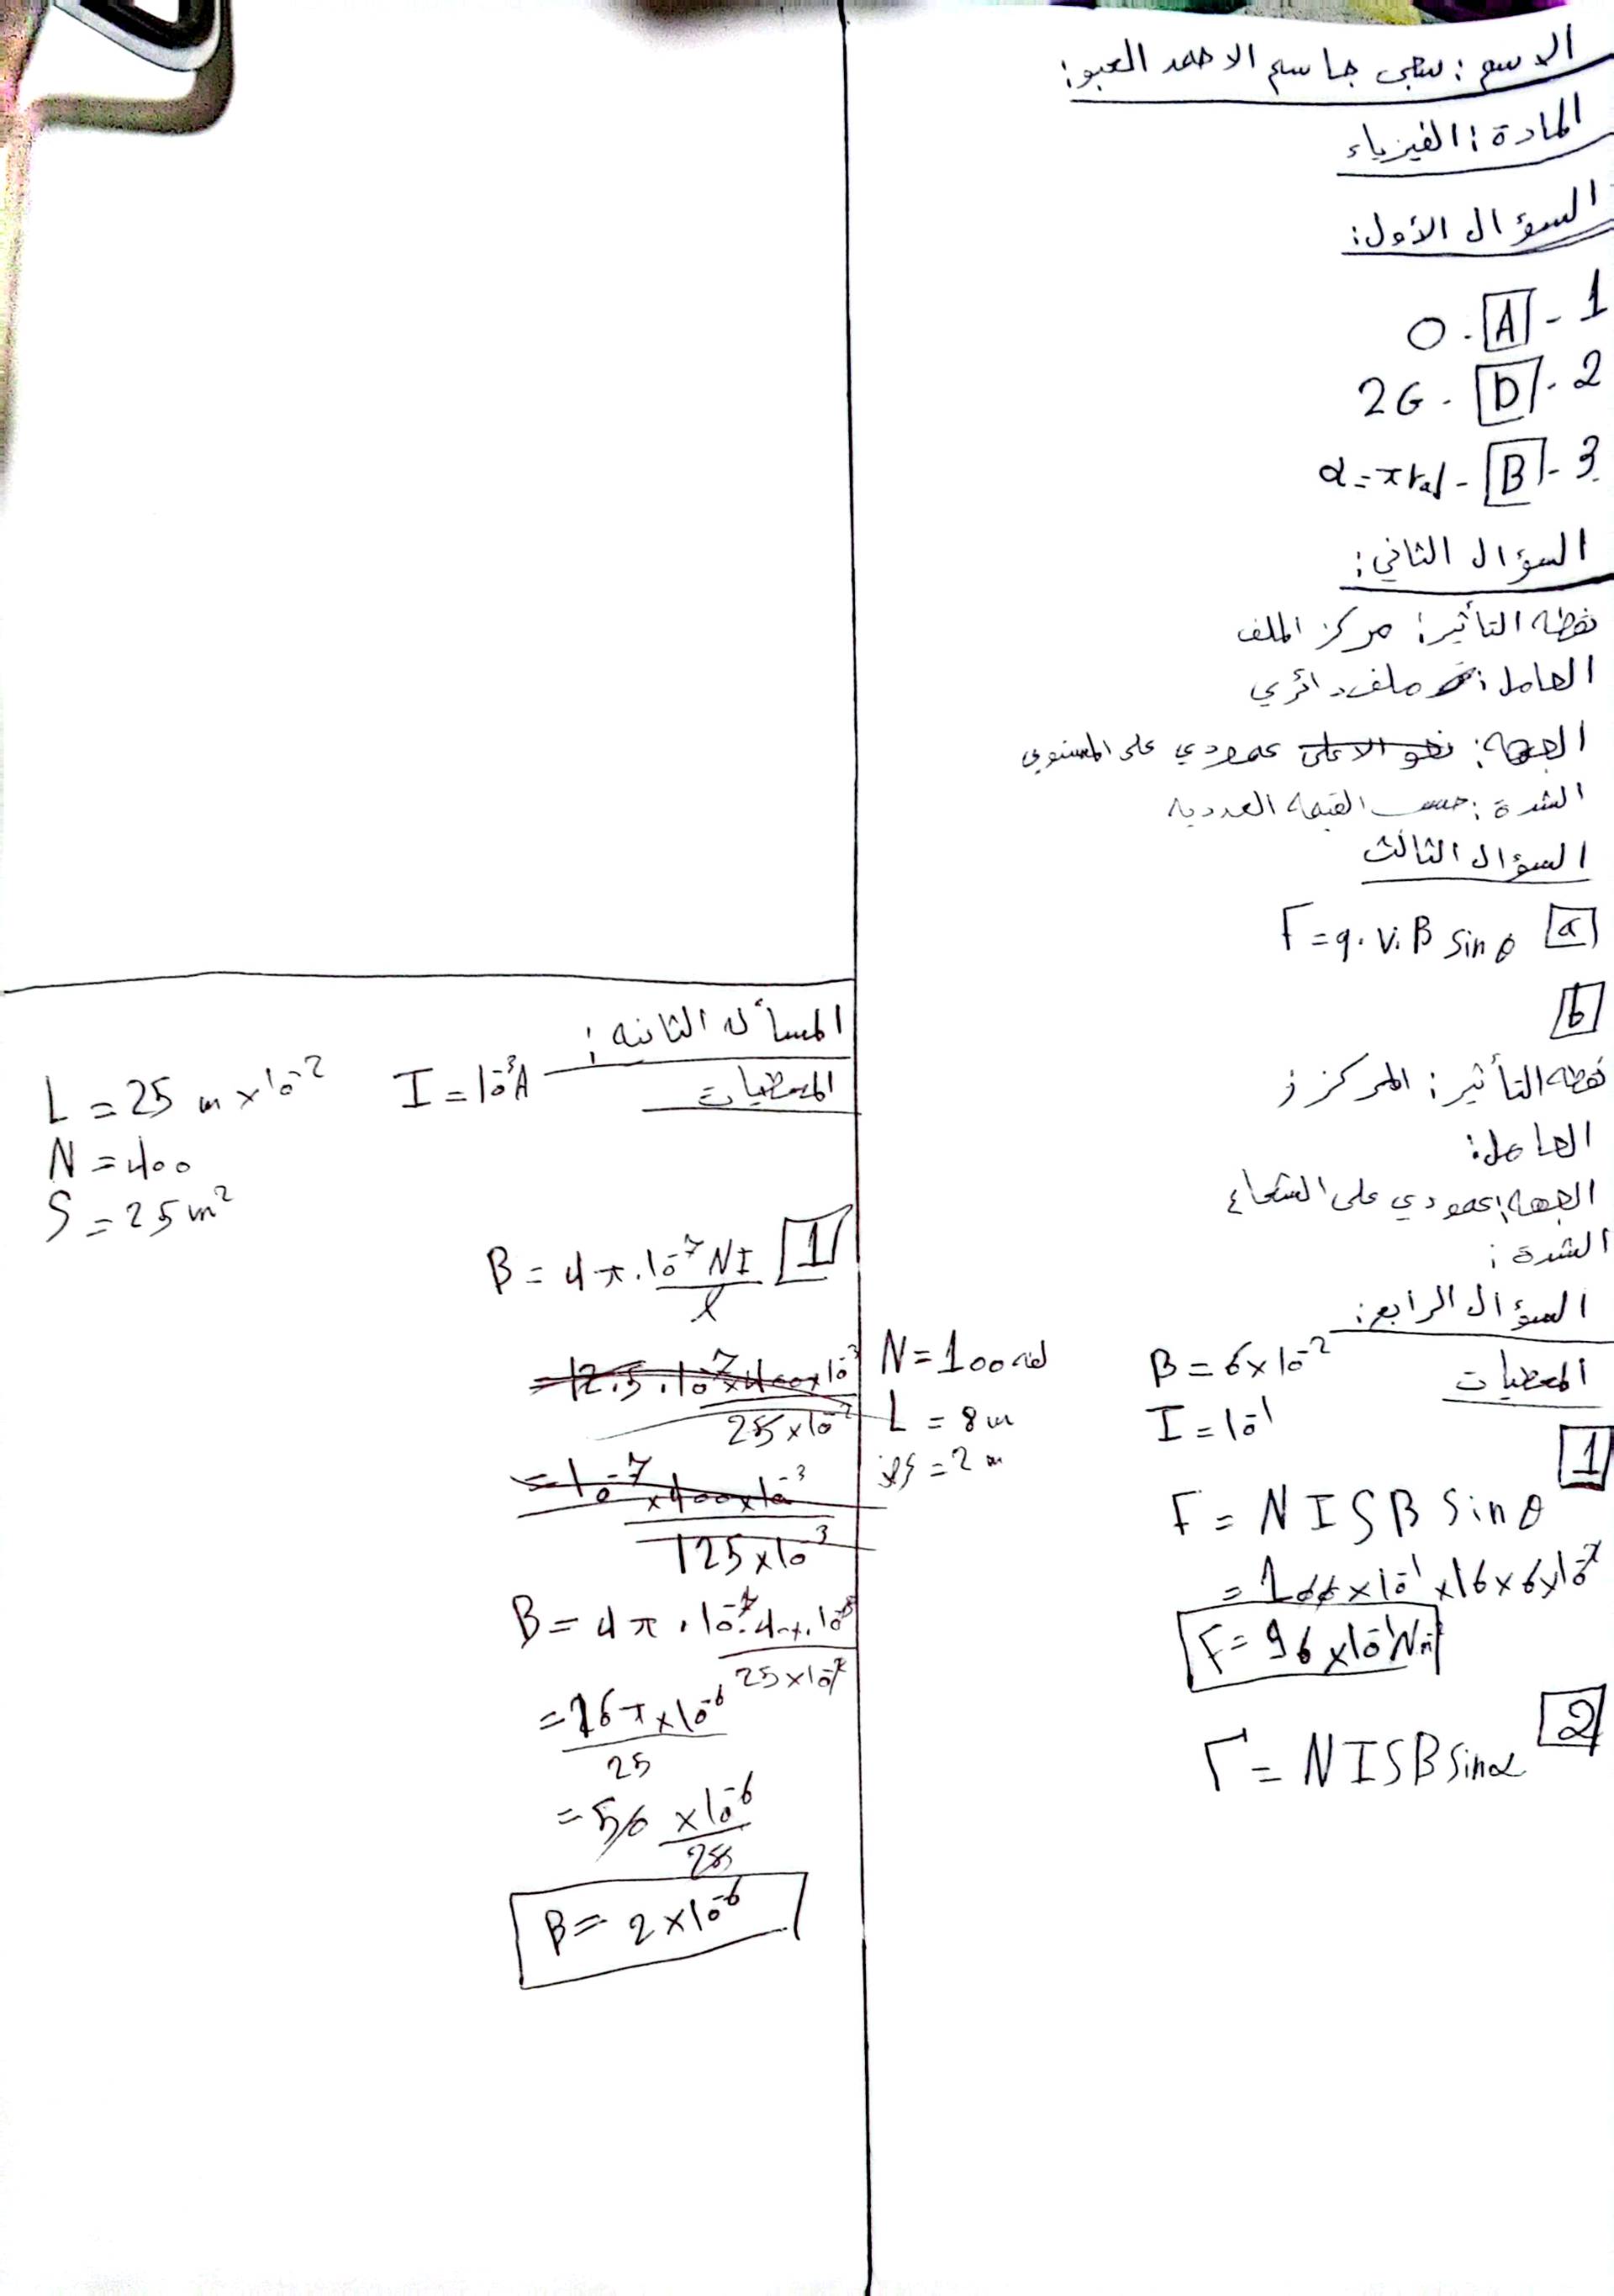 الاسم : سجى جاسم الاحمد العبو:
المادة : الفيزياء
السؤال الأول:
1 - A - 0
2 - D - 2G
3 - B - α = π rad
السؤال الثاني:
نقطة التأثير: مركز الملف
الحامل: ملف دائري
الجهة: نحو الاعلى عمودي على المستوي
الشدة : حسب القيمة العددية
السؤال الثالث
a F = q. v. B sin θ
b
نقطة التأثير: المركز
الحامل:
الجهة: عمودي على الشعاع
الشدة :
السؤال الرابع:
المعطيات B = 6×10⁻² N = 100 لفة
I = 10⁻¹ L = 8 m
= 2 m
1
F = N I S B sin θ
= 100 × 10⁻¹ × 16 × 6 × 10⁻²
F = 96 × 10⁻¹ N.m
2 Γ = N I S B sin α
المسألة الثانية :
المعطيات I = 10⁻³ A L = 25 m × 10⁻²
N = 400
S = 25 m²
1 B = 4π . 10⁻⁷ NI / ℓ
= 12.5 . 10⁻⁷ × 400 × 10⁻³ / 25 × 10⁻²
= 10⁻⁷ × 400 × 10⁻³ / 125 × 10⁻³
B = 4π . 10⁻⁷ . 400 . 10⁻³ / 25 × 10⁻²
= 16π × 10⁻⁶ / 25
= 50 × 10⁻⁶ / 25
B = 2 × 10⁻⁶